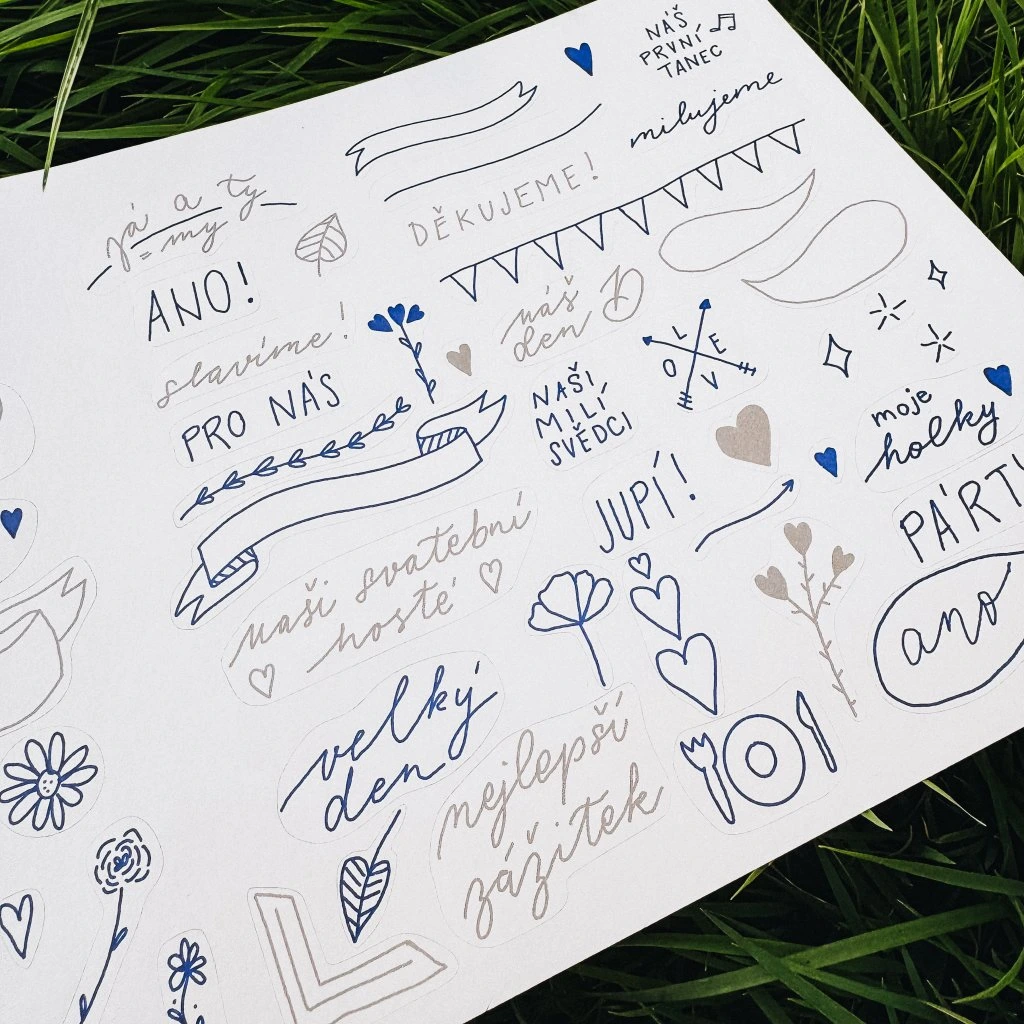 NÁŠ
PRVNÍ
TANEC
milujeme
já a ty
= my
DĚKUJEME!
ANO!
slavíme!
náš
den
L E
O V
PRO NÁS
NAŠI
MILÍ
SVĚDCI
moje
holky
JUPÍ!
PÁRTY
naši svatební
hosté
ano
velký
den
nejlepší
zážitek